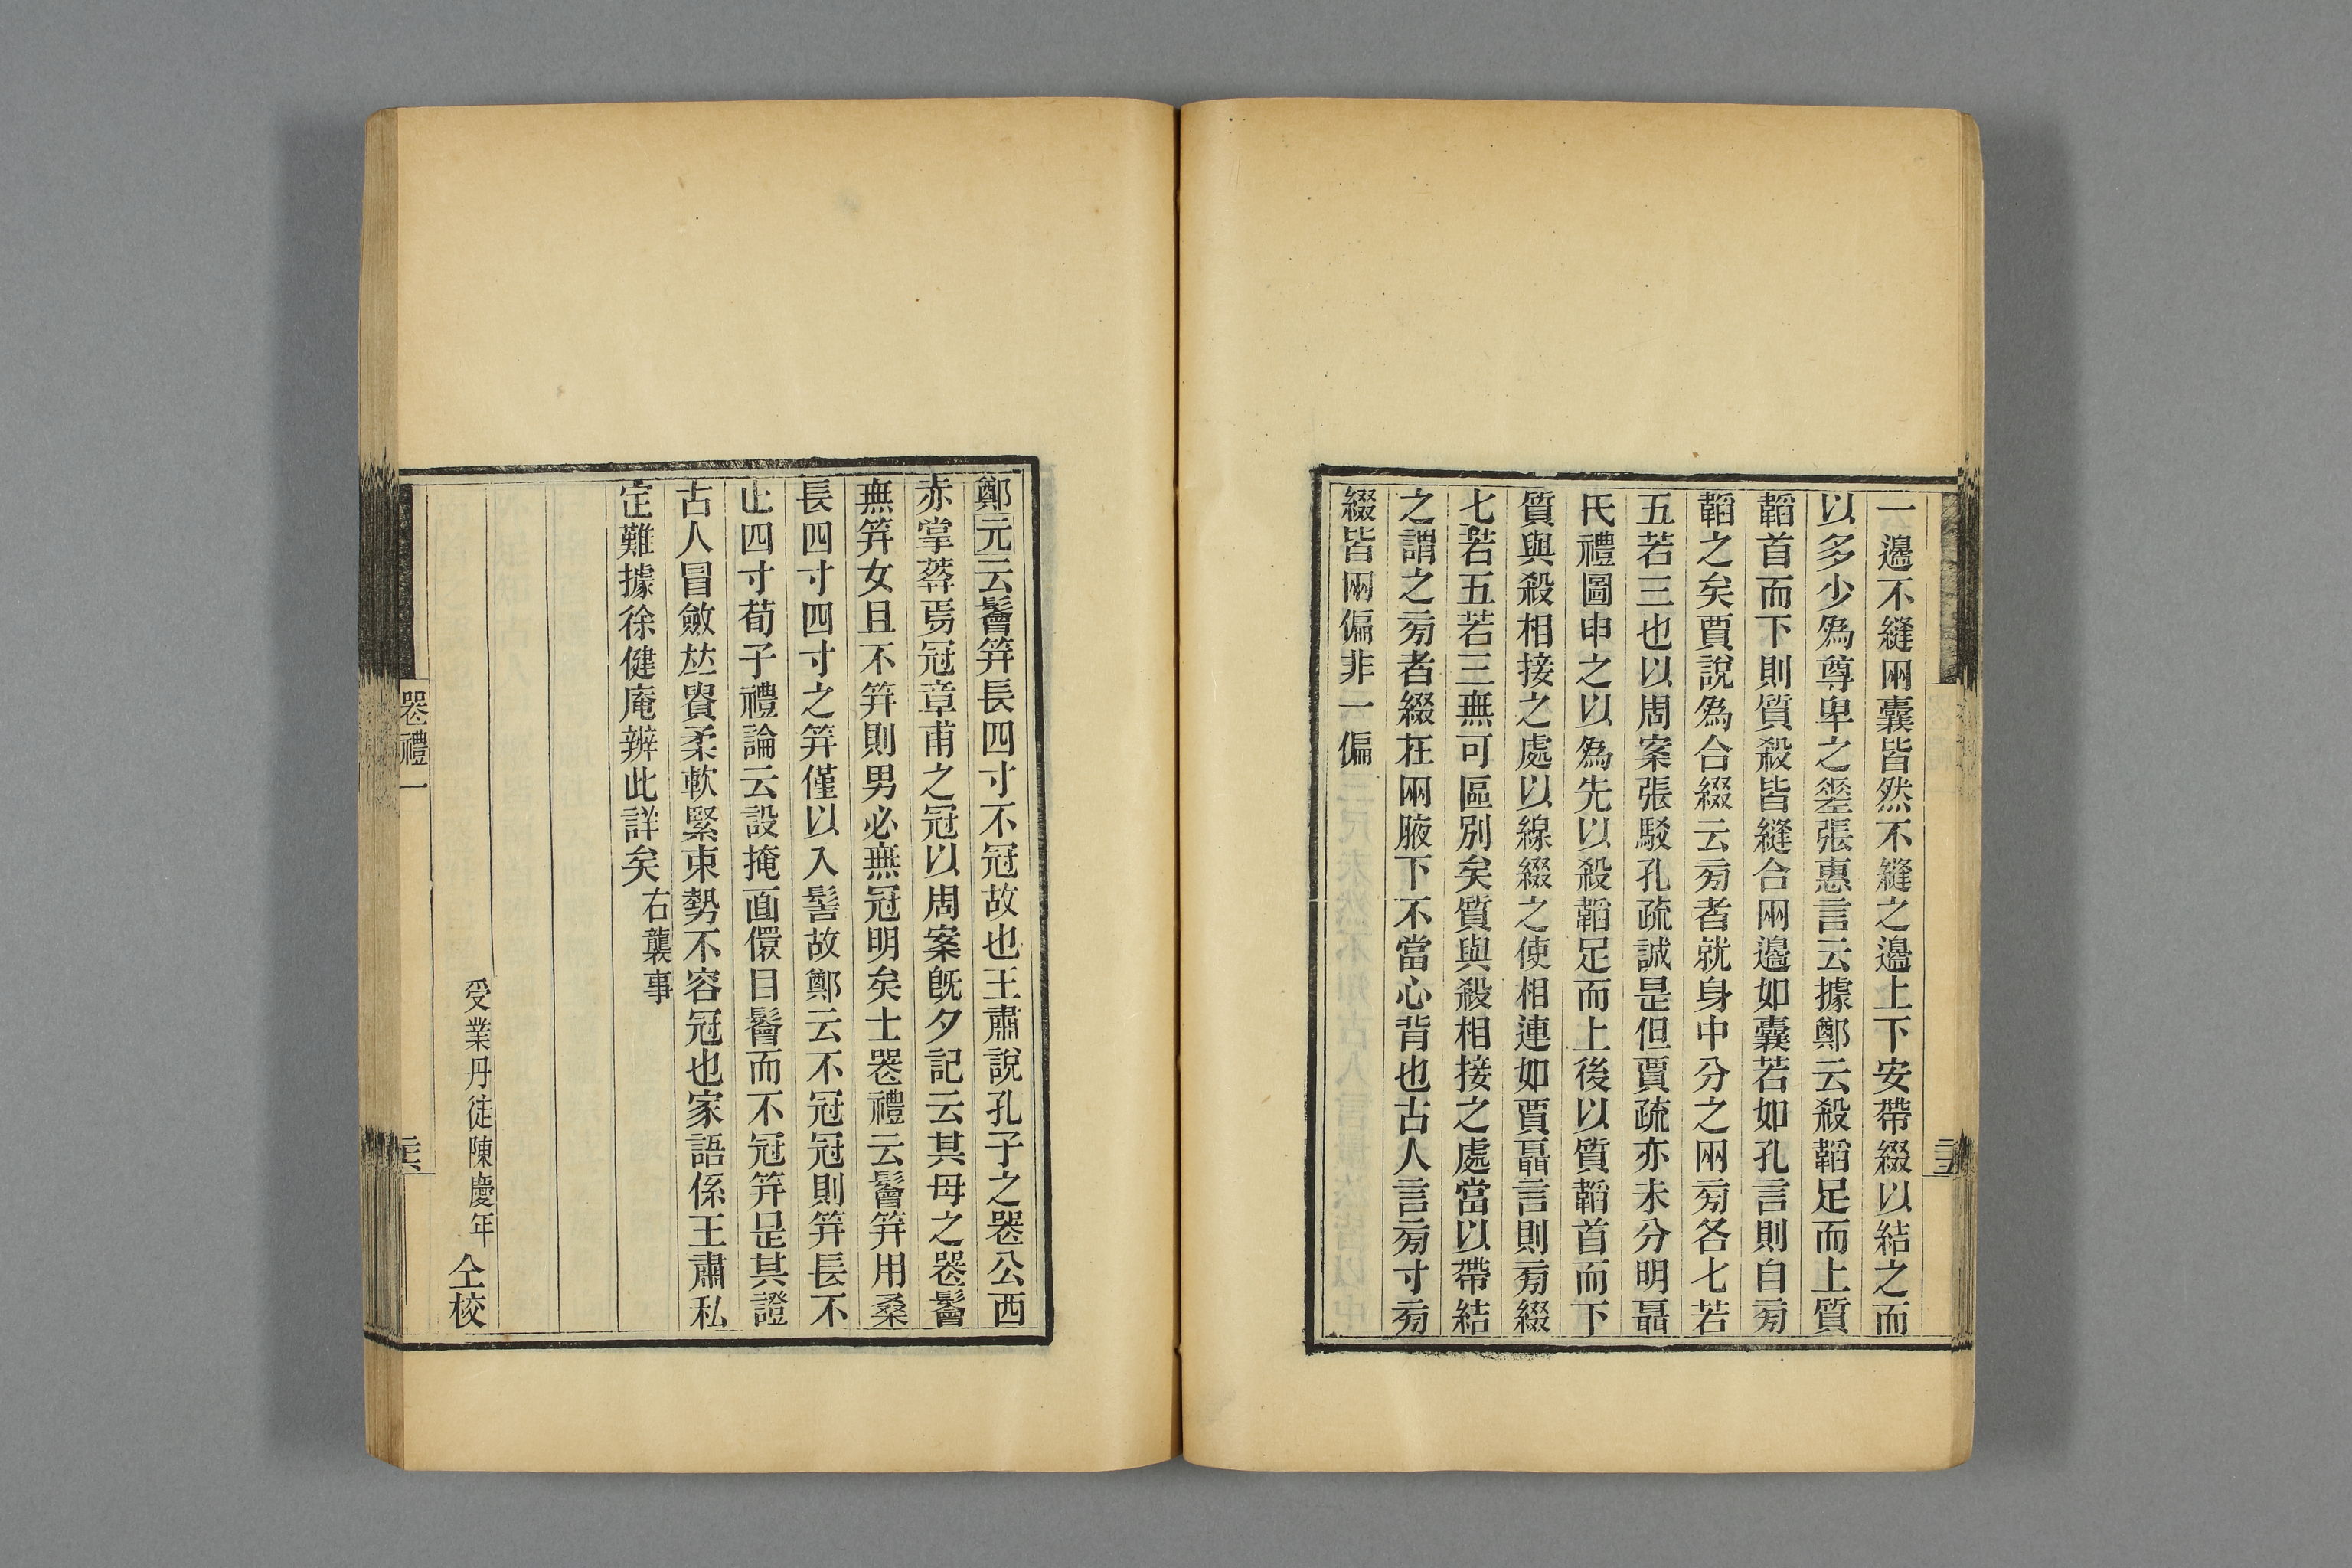 一邊不縫兩囊皆然不縫之邊上下安帶綴以結之而
以多少爲尊卑之差張惠言云據鄭云殺韜足而上質
韜首而下則質殺皆縫合兩邊如囊若如孔言則自旁
韜之矣賈說爲合綴云旁者就身中分之兩旁各七若
五若三也以周案張駁孔疏誠是但賈疏亦未分明聶
氏禮圖申之以爲先以殺韜足而上後以質韜首而下
質與殺相接之處以線綴之使相連如賈聶言則旁綴
七若五若三無可區別矣質與殺相接之處當以帶結
之謂之旁者綴在兩腋下不當心背也古人言旁寸旁
綴皆兩偏非一偏
鄭元云鬠笄長四寸不冠故也王肅說孔子之喪公西
赤掌葬焉冠章甫之冠以周案旣夕記云其母之喪鬠
無笄女且不笄則男必無冠明矣士喪禮云鬠笄用桑
長四寸四寸之笄僅以入髻故鄭云不冠冠則笄長不
止四寸荀子禮論云設掩面儇目鬠而不冠笄是其證
古人冒斂竝貴柔軟緊束勢不容冠也家語係王肅私
定難據徐健庵辨此詳矣右襲事
受業丹徒陳慶年仝校
喪禮一